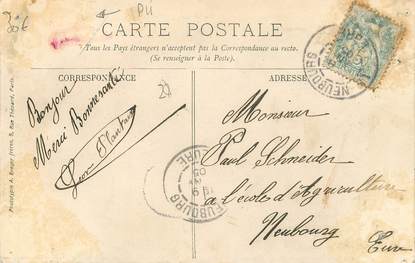 30€
PU
CARTE POSTALE
Tous les Pays étrangers n'acceptent pas la Correspondance au recto.
(Se renseigner à la Poste).
CORRESPONDANCE
ADRESSE
Bonjour
Merci Bonne santé
Monsieur
Paul Schneider
à l'école d'Agriculture
Neubourg
Eure
NEUBOURG
NEUBOURG
EURE
05